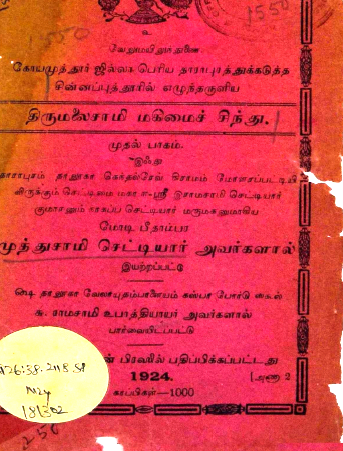 1550
1550
உ
வேலுமயிலுந்துணை
கோயமுத்தூர் ஜில்லா பெரிய தாராபுரத்துக்கடுத்த
சின்னப்புத்தூரில் எழுந்தருளிய
திருமலைசாமி மகிமைச் சிந்து.
முதல் பாகம்.
இஃது
தாராபுரம் தாலூகா கெத்தல்ரேவ் கிராமம் மோளரப்பட்டியி
லிருக்கும் செட்டிமை மகா-௱-௱-ஸ்ரீ இராமசாமி செட்டியார்
குமாரனும் நாகப்ப செட்டியார் மருமகனுமாகிய
மோடி பீதாம்பர
முத்துசாமி செட்டியார் அவர்களால்
இயற்றப்பட்டு
ஷை தாலூகா வேலாயுதம்பாளையம் கஸ்பா போர்டு ஸ்கூல்
சு. ராமசாமி உபாத்தியாயர் அவர்களால்
பார்வையிடப்பட்டு
பிரஸில் பதிப்பிக்கப்பட்டது
1924.
[அணா 2
காப்பிகள்—1000
N24
181302
250